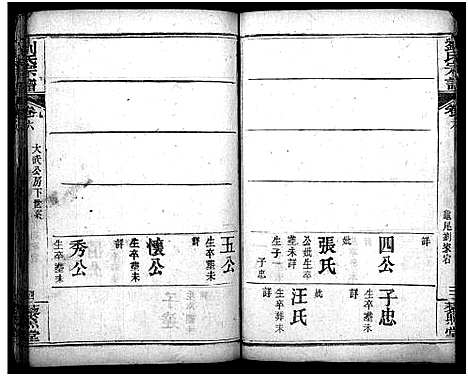 劉氏宗譜
卷六
三
藜照堂
詳
四公
妣
張氏
公妣生卒
葬未詳
生子
子忠
子忠
生卒葬未
詳
妣
汪氏
生卒葬未
詳
五公
生卒葬未
詳
懷公
生卒葬未
詳
秀公
生卒葬未
劉氏宗譜
卷六
大武公房下世系
四
藜照堂